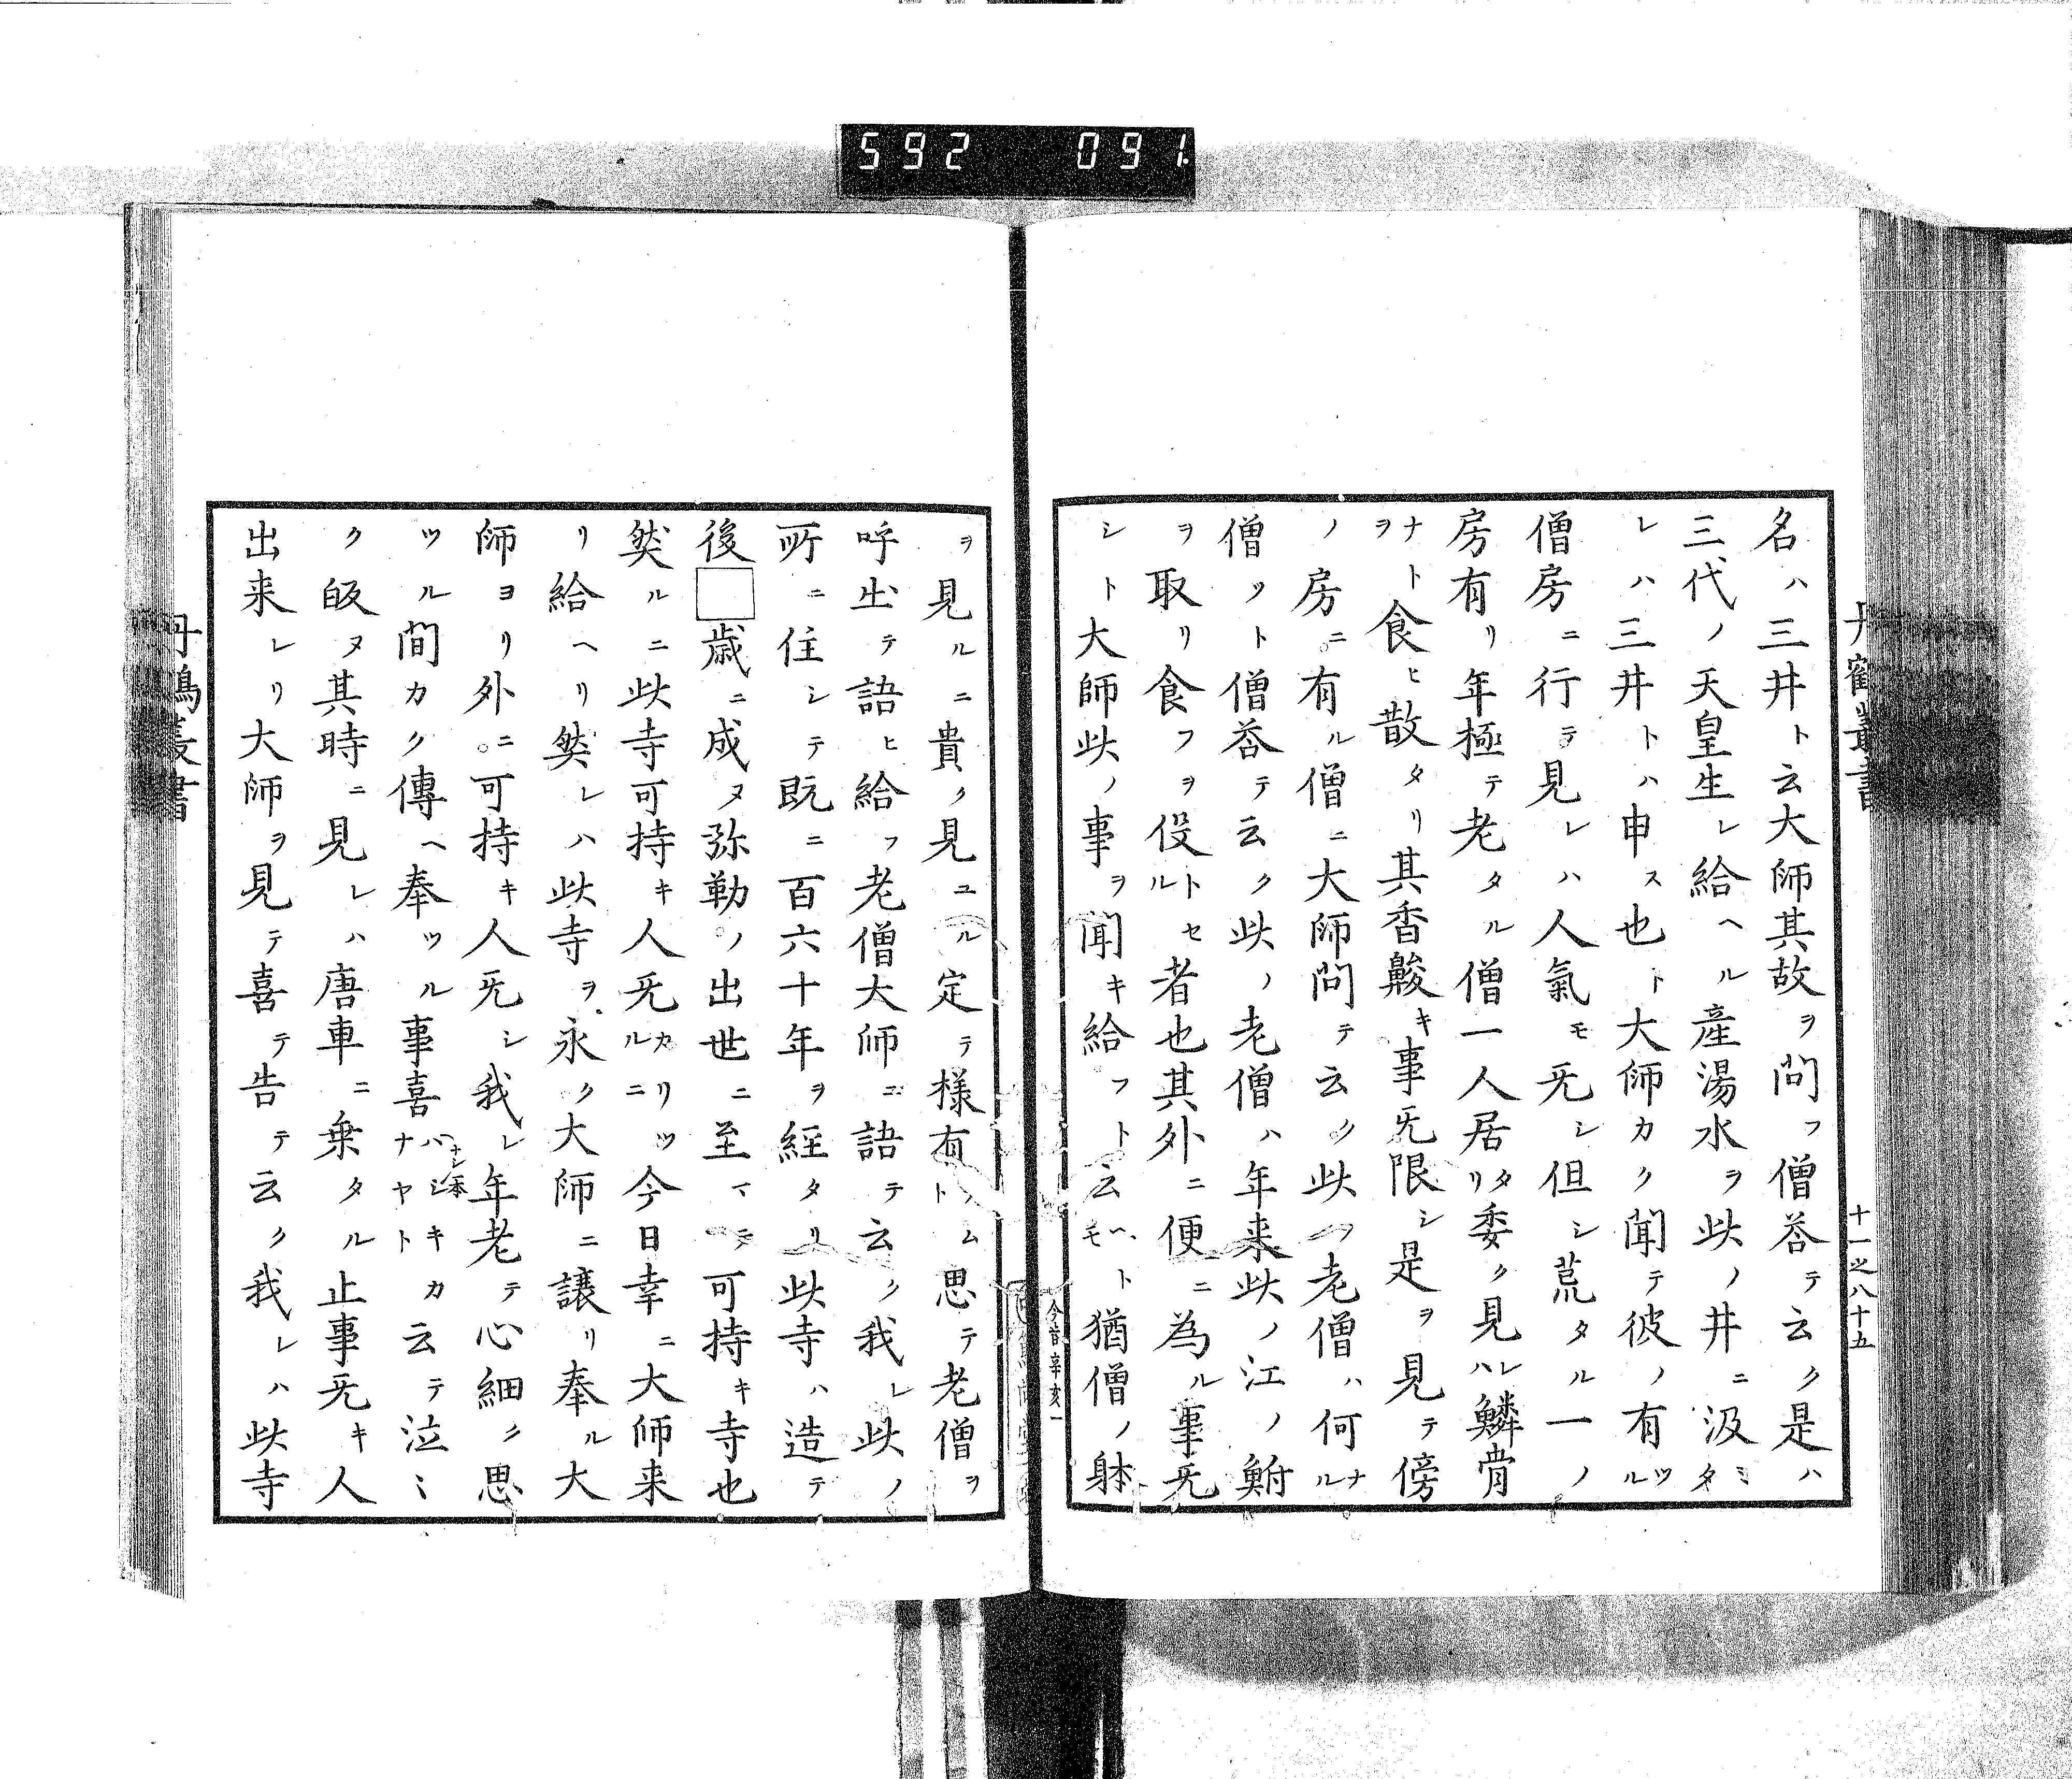 592 091
丹鶴叢書
十一之八十五
名ハ三井ト云大師其故ヲ問フ僧荅テ云ク是ハ
三代ノ天皇生レ給ヘル産湯水ヲ此ノ井ニ汲ミタ
レハ三井トハ申ス也ト大師カク聞テ彼ノ有ツル
僧房ニ行テ見レハ人氣モ旡シ但シ荒タル一ノ
房有リ年極テ老タル僧一人居タリ委ク見レハ鱗骨
ナトヲ食ヒ散タリ其香鼾キ事旡限シ是ヲ見テ傍
ノ房ニ有ル僧ニ大師問テ云ク此ノ老僧ハ何ナル
僧ソト僧荅テ云ク此ノ老僧ハ年来此ノ江ノ鮒
ヲ取リ食フヲ役トセル者也其外ニ便ニ為ル事旡
シト大師此ノ事ヲ聞キ給フト云ヘトモ猶僧ノ躰
今昔辛亥一
ヲ見ルニ貴ク見ユル定テ様有ラムト思テ老僧ヲ
呼出テ語ヒ給フ老僧大師ニ語テ云ク我レ此ノ
所ニ住シテ既ニ百六十年ヲ経タリ此寺ハ造テ
後□歳ニ成ヌ弥勒ノ出世ニ至マテ可持キ寺也
然ルニ此寺可持キ人旡カリツルニ今日幸ニ大師来
リ給ヘリ然レハ此寺ヲ永ク大師ニ譲リ奉ル大
師ヨリ外ニ可持キ人旡シ我レ年老テ心細ク思
ツル間カク傳ヘ奉ツル事喜ハシキカナヤト云テ泣〻
ナシ本
ク皈ヌ其時ニ見レハ唐車ニ乗タル止事旡キ人
出来レリ大師ヲ見テ喜テ告テ云ク我レハ此寺
丹鶴叢書